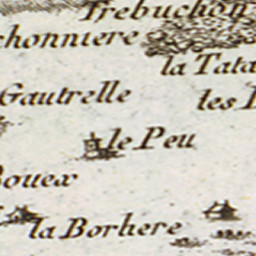 Trebuchon
chonniere
la Tata
Gautrelle
les
le Peu
Bouex
la Borhere